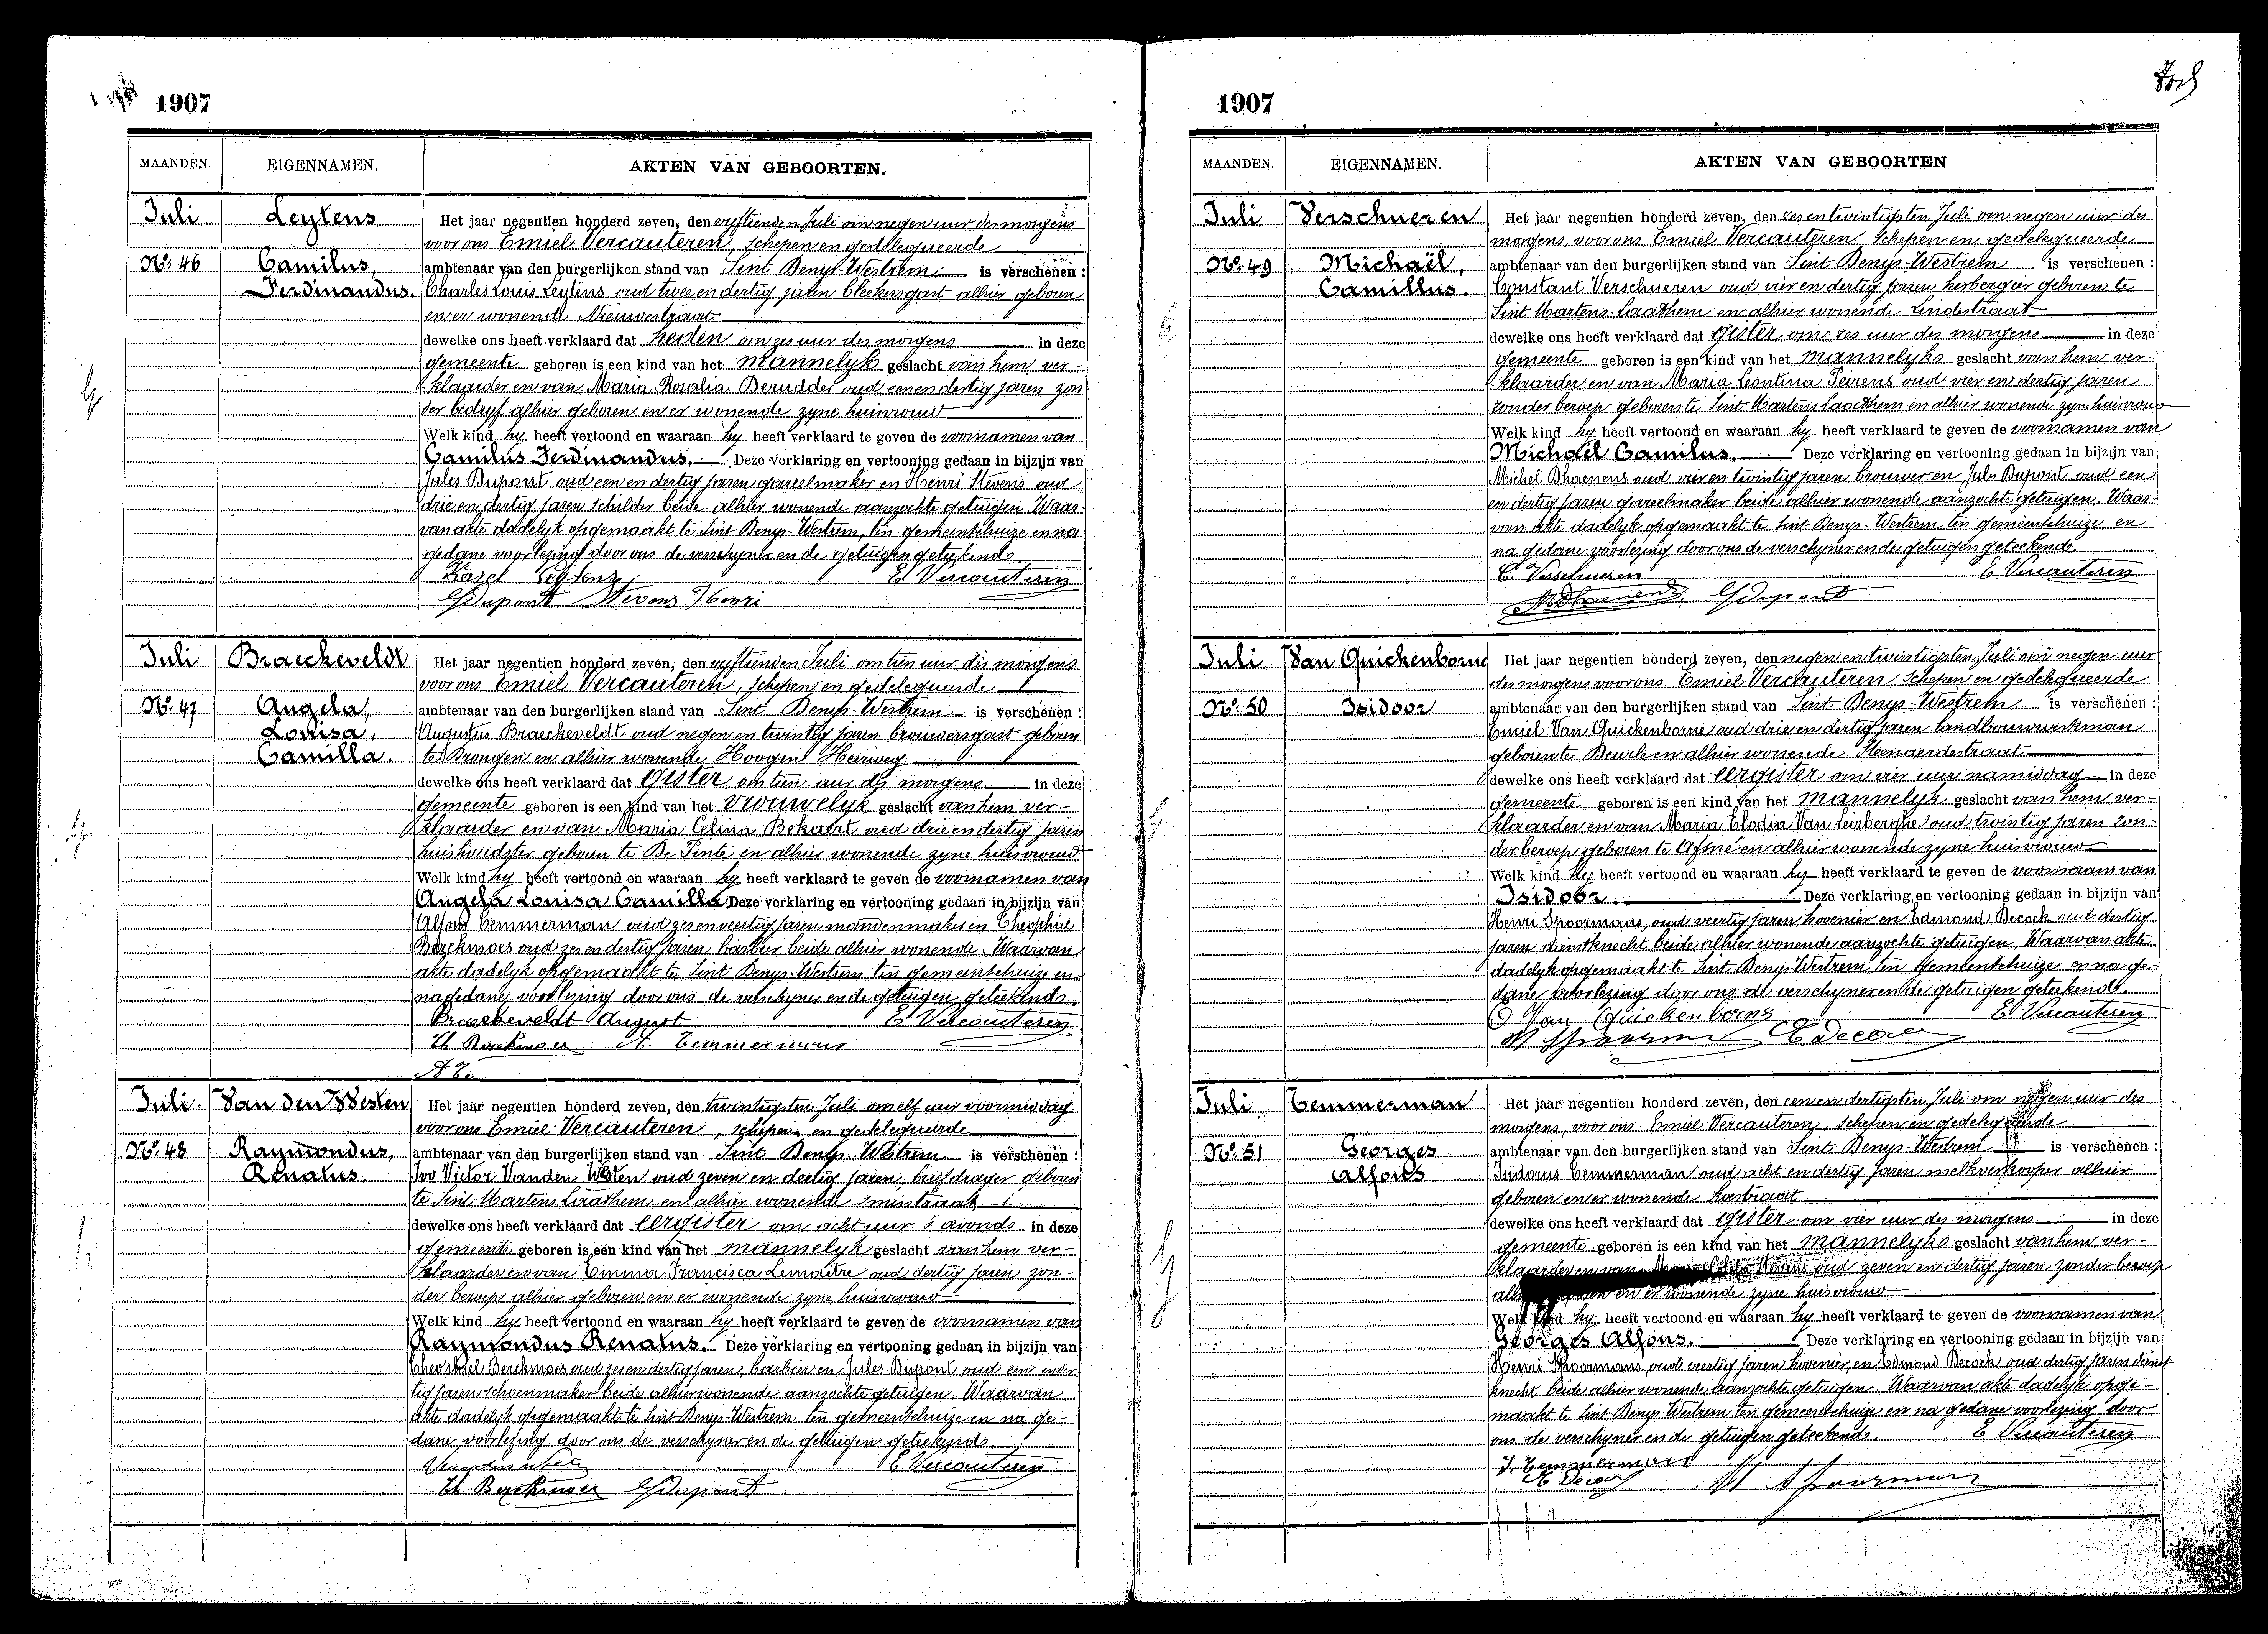 1907
MAANDEN. EIGENNAMEN. AKTEN VAN GEBOORTEN.
Juli Leytens Het jaar negentien honderd zeven, den vyftienden Juli om negen uur des morgens
voor ons Emiel Vercauteren, schepen en gedelegueerde
No. 46 Camilus, ambtenaar van den burgerlijken stand van Sint Denys-Westrem is verschenen :
Ferdinandus. Charles Louis Leytens oud twee en dertig jaren bleekersgast alhier geboren
en er wonende Nieuwestraat
dewelke ons heeft verklaard dat heden om zes uur des morgens in deze
gemeente geboren is een kind van het mannelyk geslacht van hem ver-
klaarder en van Maria Rosalia Derudder oud een en dertig jaren zon
der bedryf alhier geboren en er wonende zyne huisvrouw
Welk kind hy heeft vertoond en waaraan hy heeft verklaard te geven de voornamen van
Camilus Ferdinandus. Deze verklaring en vertooning gedaan in bijzijn van
Jules Dupont oud een en dertig jaren gareelmaker en Henri Stevens oud
drie en dertig jaren schilder beide alhier wonende aanzochte getuigen. Waar-
van akte dadelyk opgemaakt te Sint Denys-Westrem, ten gemeentehuize en na
gedane voorlezing door ons de verschyner en de getuigen geteekend.
Karel Leytens E. Vercauteren
G Dupont Stevens Henri
Juli Braeckeveldt Het jaar negentien honderd zeven, den vyftienden Juli om tien uur des morgens
voor ons Emiel Vercauteren, schepen en gedelegueerde
No. 47 Angela, ambtenaar van den burgerlijken stand van Sint Denys-Westrem is verschenen :
Louisa, Augustus Braeckeveldt oud negen en twintig jaren brouwersgast geboren
Camilla. te Drongen en alhier wonende Hoogen Heirweg
dewelke ons heeft verklaard dat gister om tien uur des morgens in deze
gemeente geboren is een kind van het vrouwelyk geslacht van hem ver-
klaarder en van Maria Celina Bekaert oud drie en dertig jaren
huishoudster geboren te De Pinte en alhier wonende zyne huisvrouw
Welk kind hy heeft vertoond en waaraan hy heeft verklaard te geven de voornamen van
Angela Louisa Camilla Deze verklaring en vertooning gedaan in bijzijn van
Alfons Temmerman oud zes en veertig jaren mandenmaker en Theophiel
Berckmoes oud zes en dertig jaren barbier beide alhier wonende. Waarvan
akte dadelyk opgemaakt te Sint Denys-Westrem ten gemeentehuize en
na gedane voorlezing door ons de verschyner en de getuigen geteekend.
Braeckeveldt August E. Vercauteren
Th Berckmoes A. Temmerman
A Te
Juli. Van den Westen Het jaar negentien honderd zeven, den twintigsten Juli om elf uur voormiddag
voor ons Emiel Vercauteren, schepen en gedelegueerde
No. 48 Raymondus, ambtenaar van den burgerlijken stand van Sint Denys-Westrem is verschenen :
Renatus. Ivo Victor Vanden Westen oud zeven en dertig jaren, briefdrager geboren
te Sint Martens Laathem en alhier wonende
dewelke ons heeft verklaard dat eergister om acht uur 's avonds in deze
gemeente geboren is een kind van het mannelyk geslacht van hem ver-
klaarder en van Emma Francisca Lemaitre oud dertig jaren zon-
der beroep alhier geboren en er wonende zyne huisvrouw
Welk kind hy heeft vertoond en waaraan hy heeft verklaard te geven de voornamen van
Raymondus Renatus. Deze verklaring en vertooning gedaan in bijzijn van
Theophiel Berckmoes oud zes en dertig jaren, barbier en Jules Dupont oud een en der
tig jaren schoenmaker beide alhier wonende aanzochte getuigen. Waarvan
akte dadelyk opgemaakt te Sint Denys-Westrem ten gemeentehuize en na ge-
dane voorlezing door ons de verschyner en de getuigen geteekend.
E. Vercauteren
Th Berckmoes G Dupont
1907
MAANDEN. EIGENNAMEN. AKTEN VAN GEBOORTEN
Juli Verschueren Het jaar negentien honderd zeven, den zes en twintigsten Juli om negen uur des
morgens, voor ons Emiel Vercauteren schepen en gedelegueerde
No. 49 Michaël, ambtenaar van den burgerlijken stand van Sint Denys-Westrem is verschenen :
Camillus. Constant Verschueren oud vier en dertig jaren herbergier geboren te
Sint Martens-Laathem en alhier wonende Lindestraat
dewelke ons heeft verklaard dat gister om zes uur des morgens in deze
gemeente geboren is een kind van het mannelyks geslacht van hem ver-
klaarder en van Maria Leontina Peirens oud vier en dertig jaren
zonder beroep geboren te Sint Martens Laathem en alhier wonende zyne huisvrouw
Welk kind hy heeft vertoond en waaraan hy heeft verklaard te geven de voornamen van
Michaël Camilus. Deze verklaring en vertooning gedaan in bijzijn van
Michel Dhaenens oud vier en twintig jaren brouwer en Jules Dupont oud een
en dertig jaren gareelmaker beide alhier wonende aanzochte getuigen. Waar-
van akte dadelyk opgemaakt te Sint Denys-Westrem ten gemeentehuize en
na gedane voorlezing door ons de verschyner en de getuigen geteekend.
C. Verschueren E. Vercauteren
MDhaenens G Dupont
Juli Van Quickenborne Het jaar negentien honderd zeven, den negen en twintigsten Juli om negen uur
des morgens voor ons Emiel Vercauteren schepen en gedelegueerde
No. 50 Isidoor ambtenaar van den burgerlijken stand van Sint Denys-Westrem is verschenen :
Emiel Van Quickenborne oud drie en dertig jaren landbouwwerkman
geboren te Deurle en alhier wonende
dewelke ons heeft verklaard dat eergister om vier uur namiddag in deze
gemeente geboren is een kind van het mannelyk geslacht van hem ver-
klaarder en van Maria Elodia Van Leirberghe oud twintig jaren zon-
der beroep geboren te Afsné en alhier wonende zyne huisvrouw
Welk kind hy heeft vertoond en waaraan hy heeft verklaard te geven de voornaam van
Isidoor. Deze verklaring en vertooning gedaan in bijzijn van
Henri Spoormans, oud veertig jaren hovenier en Edmond Decock oud dertig
jaren dienstknecht beide alhier wonende aanzochte getuigen. Waarvan akte
dadelyk opgemaakt te Sint Denys-Westrem ten gemeentehuize en na ge-
dane voorlezing door ons de verschyner en de getuigen geteekend.
Van Quickenborne E. Vercauteren
H Spoorman E Decock
Juli Temmerman Het jaar negentien honderd zeven, den een en dertigsten Juli om negen uur des
morgens, voor ons Emiel Vercauteren, schepen en gedelegueerde
No. 51 Georges ambtenaar van den burgerlijken stand van Sint Denys-Westrem is verschenen :
Alfons Isidorus Temmerman oud acht en dertig jaren melkverkooper alhier
geboren en er wonende
dewelke ons heeft verklaard dat gister om vier uur des morgens in deze
gemeente geboren is een kind van het mannelyks geslacht van hem ver-
klaarder en van Stevens oud zeven en dertig jaren zonder beroep
en er wonende zyne huisvrouw
Welk kind hy heeft vertoond en waaraan hy heeft verklaard te geven de voornamen van
Georges Alfons. Deze verklaring en vertooning gedaan in bijzijn van
Henri Spoormans, oud veertig jaren hovenier, en Edmond Decock oud dertig jaren dienst
knecht beide alhier wonende aanzochte getuigen. Waarvan akte dadelyk opge-
maakt te Sint Denys-Westrem ten gemeentehuize en na gedane voorlezing door
ons de verschyner en de getuigen geteekend. E. Vercauteren
I. Temmerman
E Decock H Spoorman